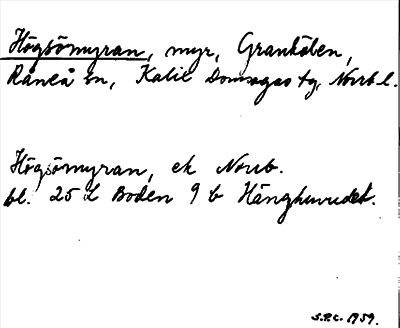 Högsömyran, myr, Granhölen,
Råneå sn, Kalix Domsagas tg, Norrb l.
Högsömyran, ek Norrb.
bl. 25 L Boden 9 b Hänghuvudet.
S.P.C. 1959.